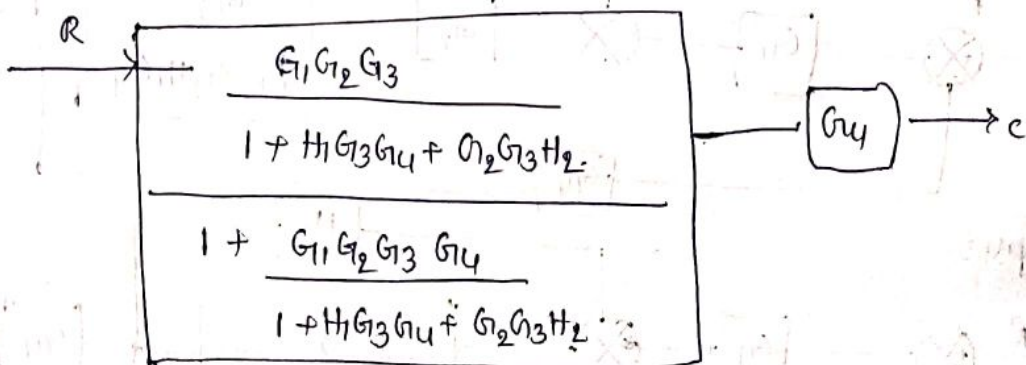 R
G₁G₂G₃
1 + H₁G₃G₄ + G₂G₃H₂.
1 + G₁G₂G₃ G₄
1 + H₁G₃G₄ + G₂G₃H₂
G₄
C